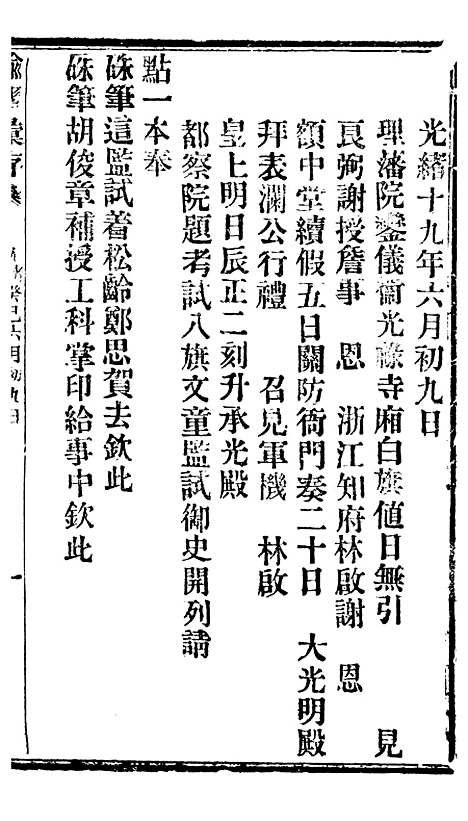 光緒十九年六月初九日
理藩院鑾儀衞光祿寺廂白旗値日無引　見
良弼謝授詹事　恩　浙江知府林啟謝　恩
額中堂續假五日關防衙門奏二十日　大光明殿
拜表瀾公行禮　召見軍機　林啟
皇上明日辰正二刻升承光殿
都察院題考試八旗文童監試御史開列請
點一本奉
硃筆這監試着松齡鄭思賀去欽此
硃筆胡俊章補授工科掌印給事中欽此
諭摺彙存
光緒癸巳六月初九日
一